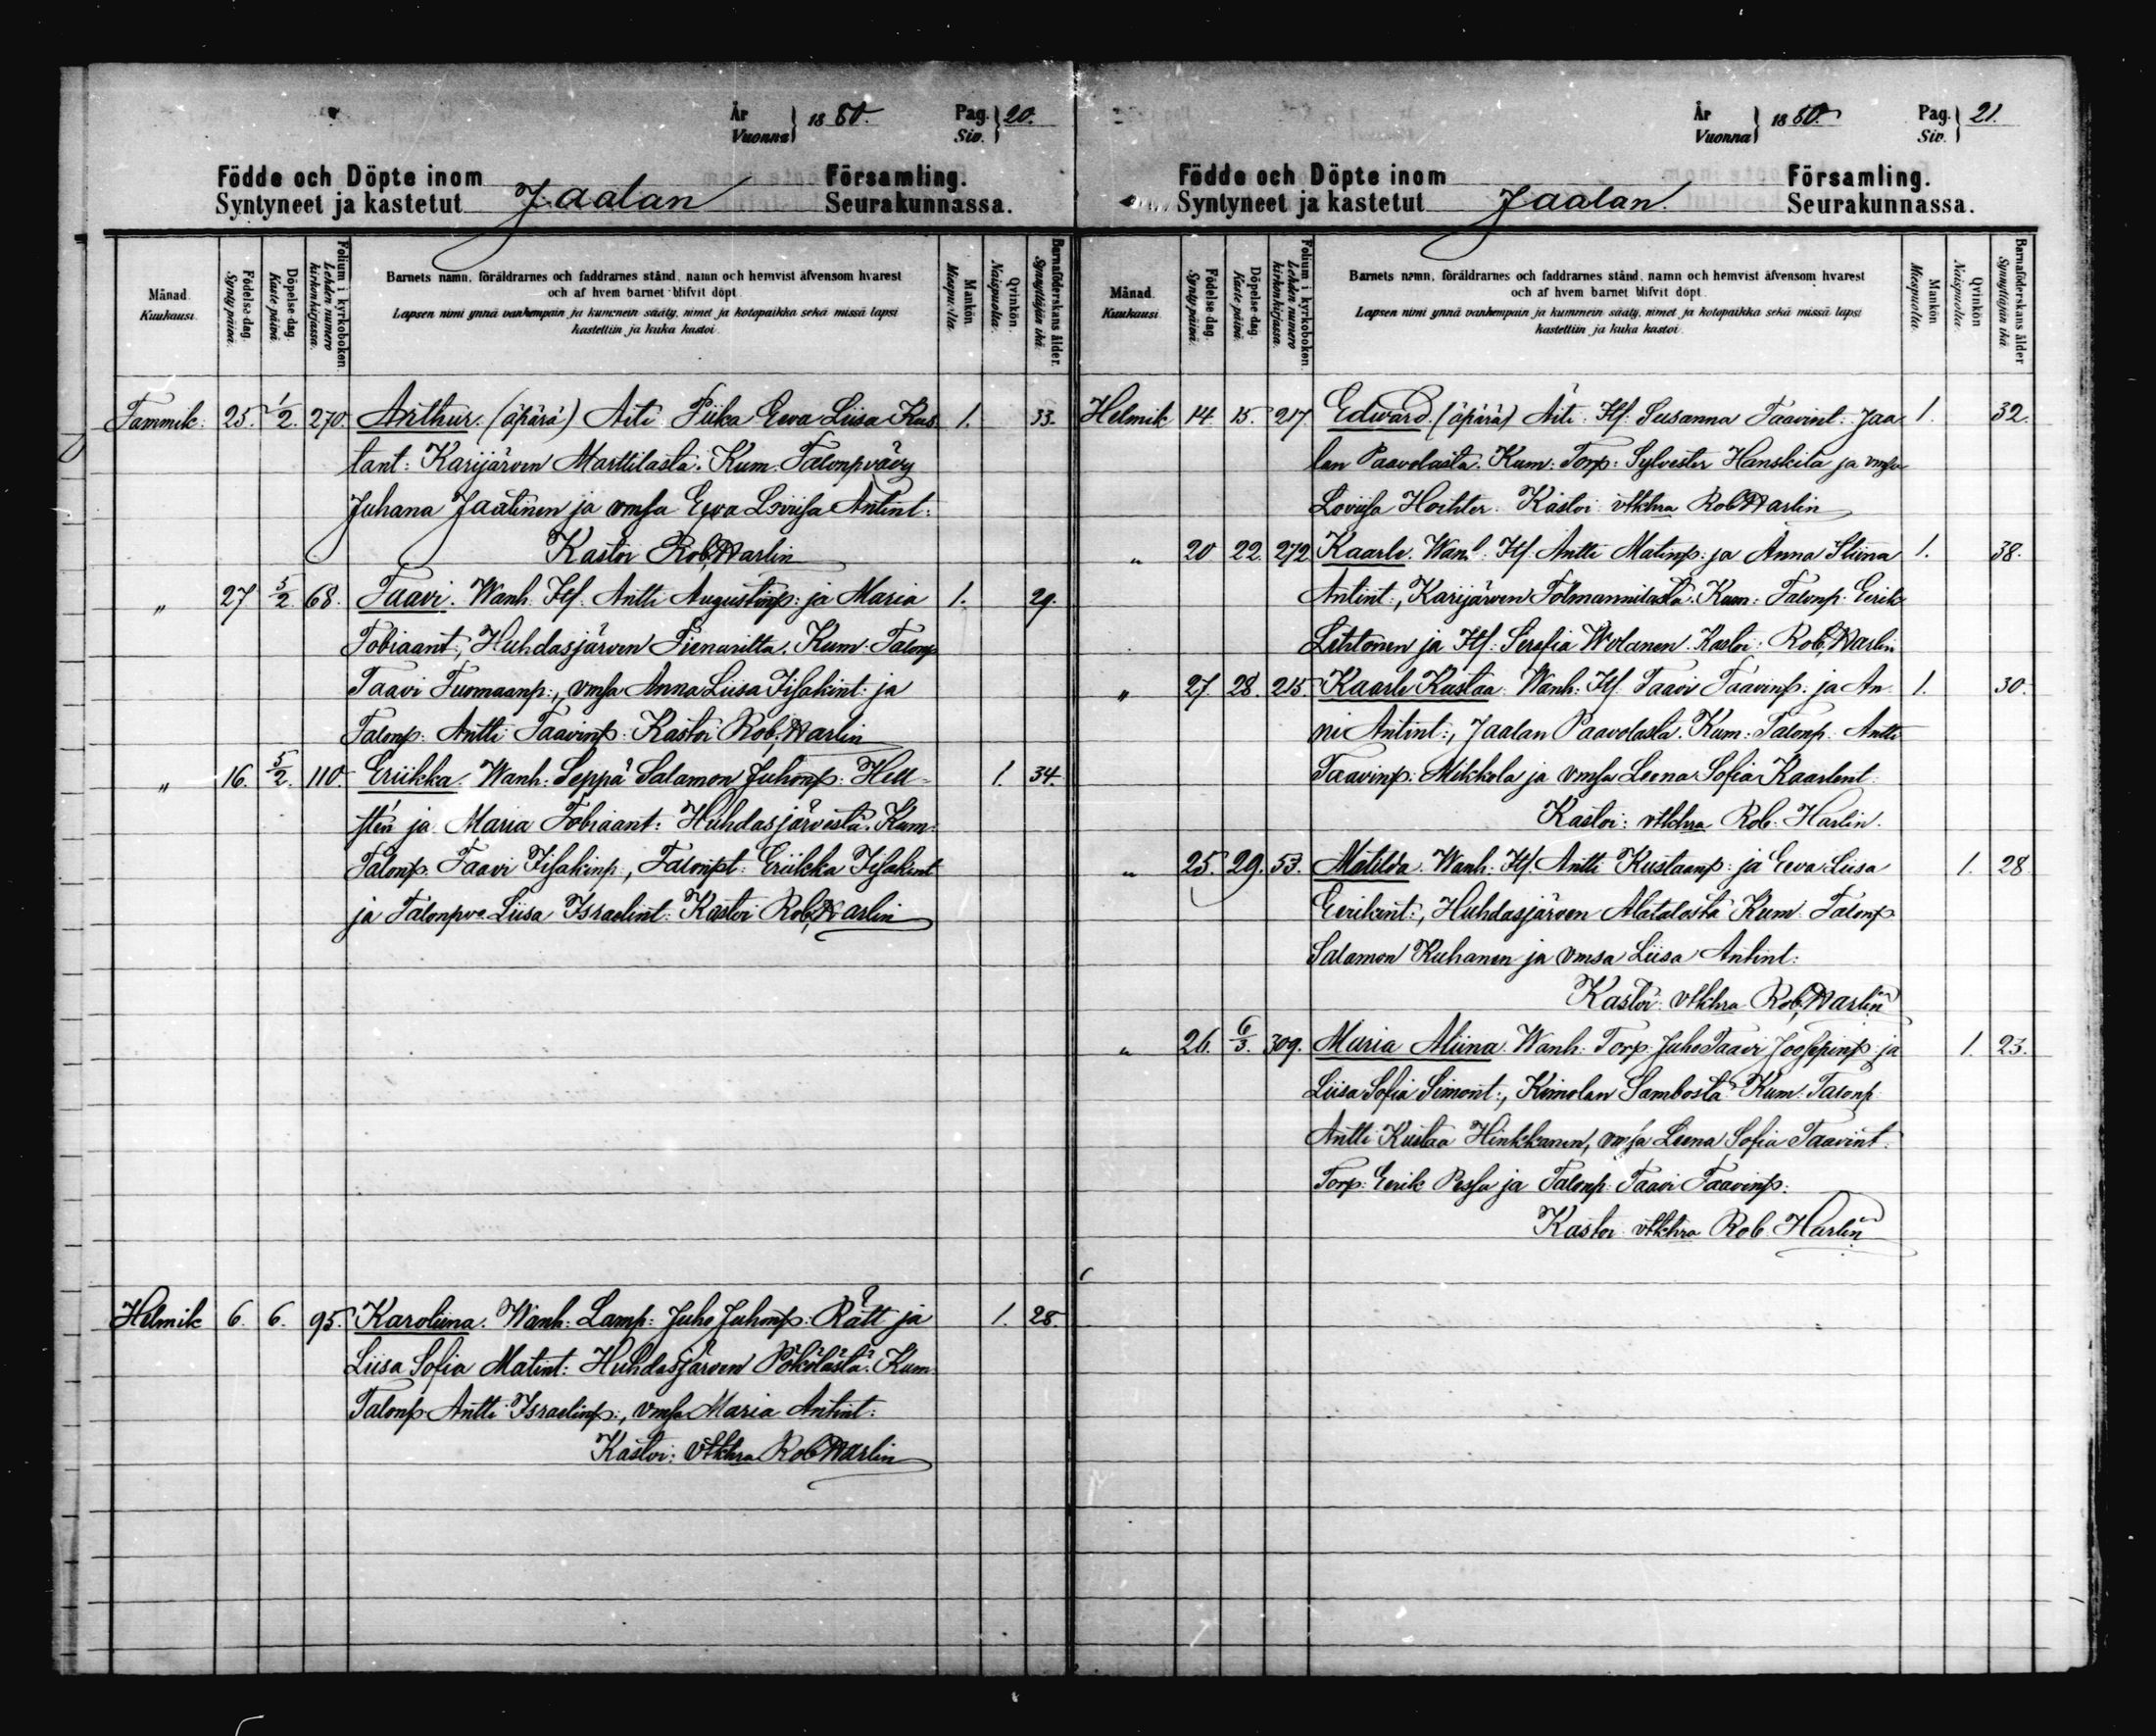 År Vuonna } 1880. Pag. Siv. } 20.
Födde och Döpte inom Församling.
Syntyneet ja kastetut Jaalan Seurakunnassa.
Månad. Kuukausi.
Födelse dag. Synty päivä.
Döpelse dag. Kaste päivä.
Folium i kyrkoboken. Lehden numero kirkonkirjassa.
Barnets namn, föräldrarnes och faddrarnes stånd, namn och hemvist äfvensom hvarest
och af hvem barnet blifvit döpt.
Lapsen nimi ynnä vanhempain ja kummein sääty, nimet ja kotopaikka sekä missä lapsi
kastettiin ja kuka kastoi.
Mankön. Miespuolta.
Qvinkön. Naispuolta.
Barnaföderskans ålder. Synnyttäjän ikä.
Tammik: 25. 1/2. 270. Arthur. (äpärä) Äiti Piika Eeva Liisa Kus 1. 33.
tant: Karijärven Marttilasta. Kum. Talonpvävy
Juhana Jaatinen ja vmsa Eeva Loviisa Antint:
Kastoi Rob. Harlin
" 27 5/2. 68. Taavi. Wanh. Itf. Antti Augustinp: ja Maria 1. 29.
Tobiaant:, Huhdasjärven Pienuritta. Kum. Talonp
Taavi Tuomaanp:, vmsa Anna Liisa Iisakint: ja
Talonp: Antti Taavinp: Kastoi Rob. Harlin
" 16. 5/2. 110. Eriikka. Wanh. Seppä Salamon Juhonp: Hell- 1. 34.
stén ja Maria Tobiaant: Huhdasjärvestä. Kum:
Talonp. Taavi Iisakinp:, Talonpt: Eriikka Iisakint
ja Talonpva Liisa Israelint: Kastoi Rob. Harlin
Helmik 6. 6. 95. Karoliina. Wanh: Lamp: Juho Juhonp: Rätt ja 1. 28.
Liisa Sofia Matint: Huhdasjärven Pökölästä. Kum
Talonp Antti Israelinp:, vmsa Maria Antint:
Kastoi: vtkhra Rob Harlin
År Vuonna } 1880. Pag. Siv. } 21.
Födde och Döpte inom Församling.
Syntyneet ja kastetut Jaalan. Seurakunnassa.
Månad. Kuukausi.
Födelse dag. Synty päivä.
Döpelse dag. Kaste päivä.
Folium i kyrkoboken. Lehden numero kirkonkirjassa.
Barnets namn, föräldrarnes och faddrarnes stånd, namn och hemvist äfvensom hvarest
och af hvem barnet blifvit döpt.
Lapsen nimi ynnä vanhempain ja kummein sääty, nimet ja kotopaikka sekä missä lapsi
kastettiin ja kuka kastoi.
Mankön. Miespuolta.
Qvinkön. Naispuolta.
Barnaföderskans ålder. Synnyttäjän ikä.
Helmik 14. 15. 217. Edward. (äpärä) Äiti. Itf. Susanna Taavint: Jaa 1. 32.
lan Paavolasta. Kum: Torp: Sylvester Hanskila ja vmsa
Loviisa Kastoi vtkhra Rob Harlin
" 20 22. 272 Kaarle. Wanh. Itf. Antti Matinp: ja Anna Stiina 1. 38.
Antint:, Karijärven Tolmannilasta. Kum: Talonp: Eerik
Lehtonen ja Itf: Serafia Kastoi: Rob. Harlin
" 27. 28. 215 Kaarle Kustaa. Wanh: Itf. Taavi Taavinp: ja An 1. 30.
ni Antint:, Jaalan Paavolasta. Kum: Talonp: Antti
Taavinp: Mikkola ja vmsa Leena Sofia Kaarlent:
Kastoi: vtkhra Rob. Harlin.
" 25. 29. 53. Matilda. Wanh: Itf. Antti Kustaanp: ja Eeva Liisa 1. 28.
Eerikint:, Huhdasjärven Alatalosta Kum: Talonp
Salamon Kuhanen ja vmsa Liisa Antint:
Kastoi: vtkhra Rob. Harlin
" 26. 6/3. 309. Maria Aliina. Wanh: Torp: Juho Taavi Joosepinp: ja 1. 23.
Liisa Sofia Simont:, Kimolan Sambosta Kum: Talonp.
Antti Kustaa Hinkkanen, vmsa Leena Sofia Taavint:
Torp: Eerik Pessa ja Talonp: Taavi Taavinp:
Kastoi vtkhra Rob. Harlin